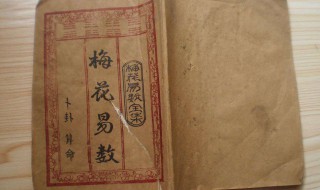 梅花易数全集
梅花易数
卜卦算命